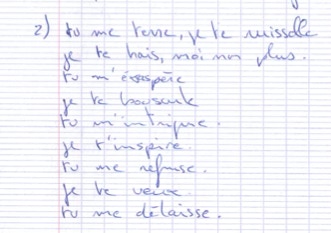 2) tu me terre, je te ruisselle
je te hais, moi non plus.
tu m'éxaspère
je te bouscule
tu m'intrigue.
je t'inspire.
tu me refuse.
je te veux.
tu me délaisse.